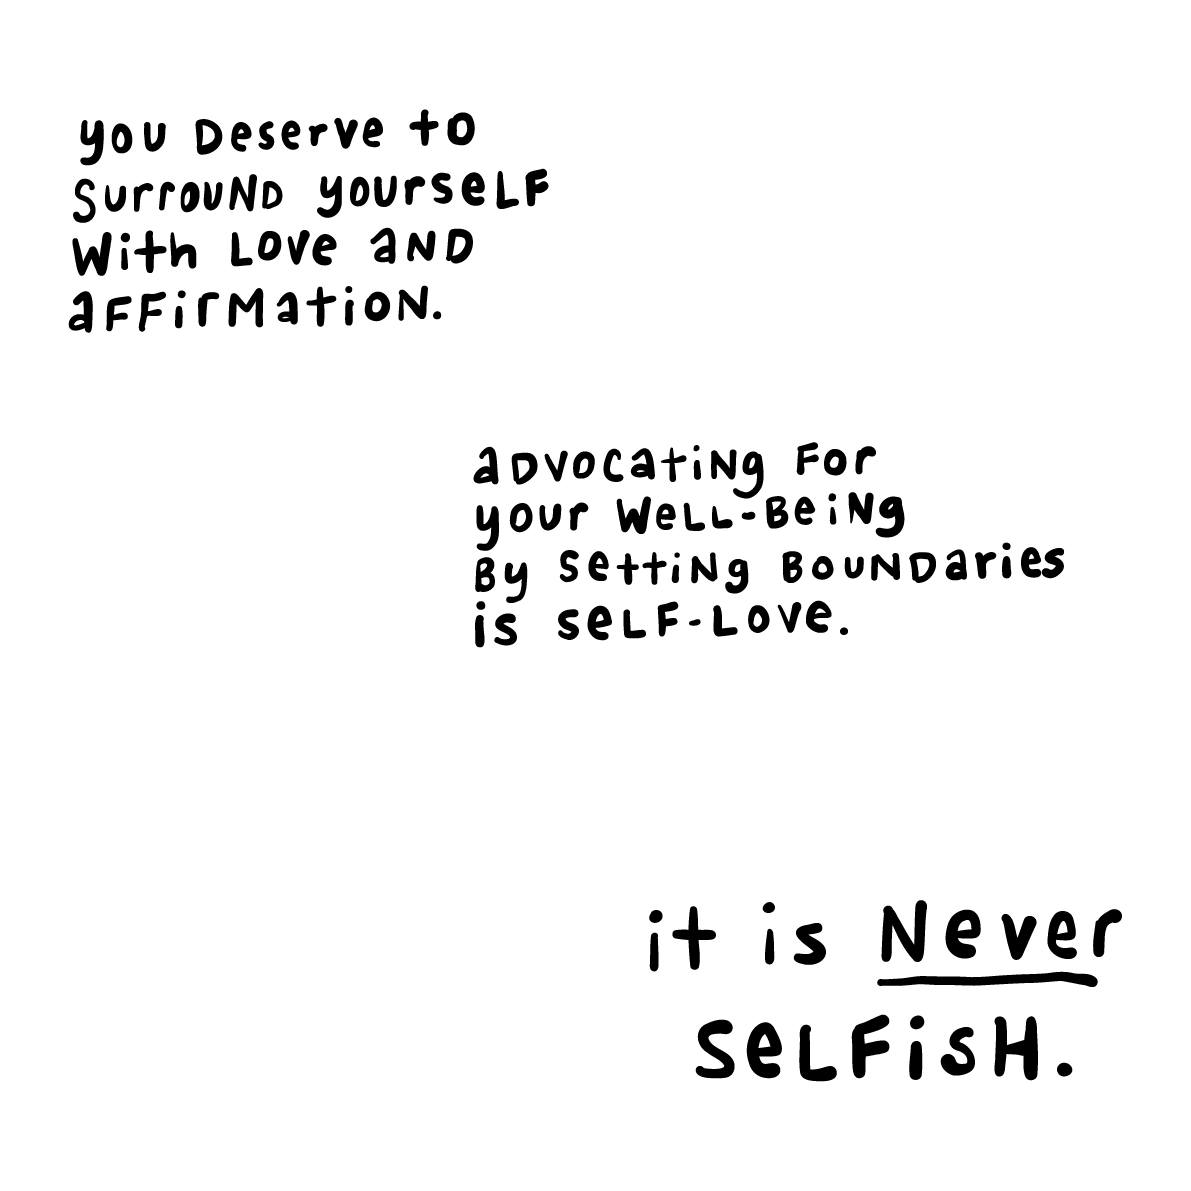 you Deserve to
surround yourself
with love and
affirmation.
advocating for
your well-being
by setting boundaries
is self-love.
it is Never
selfish.